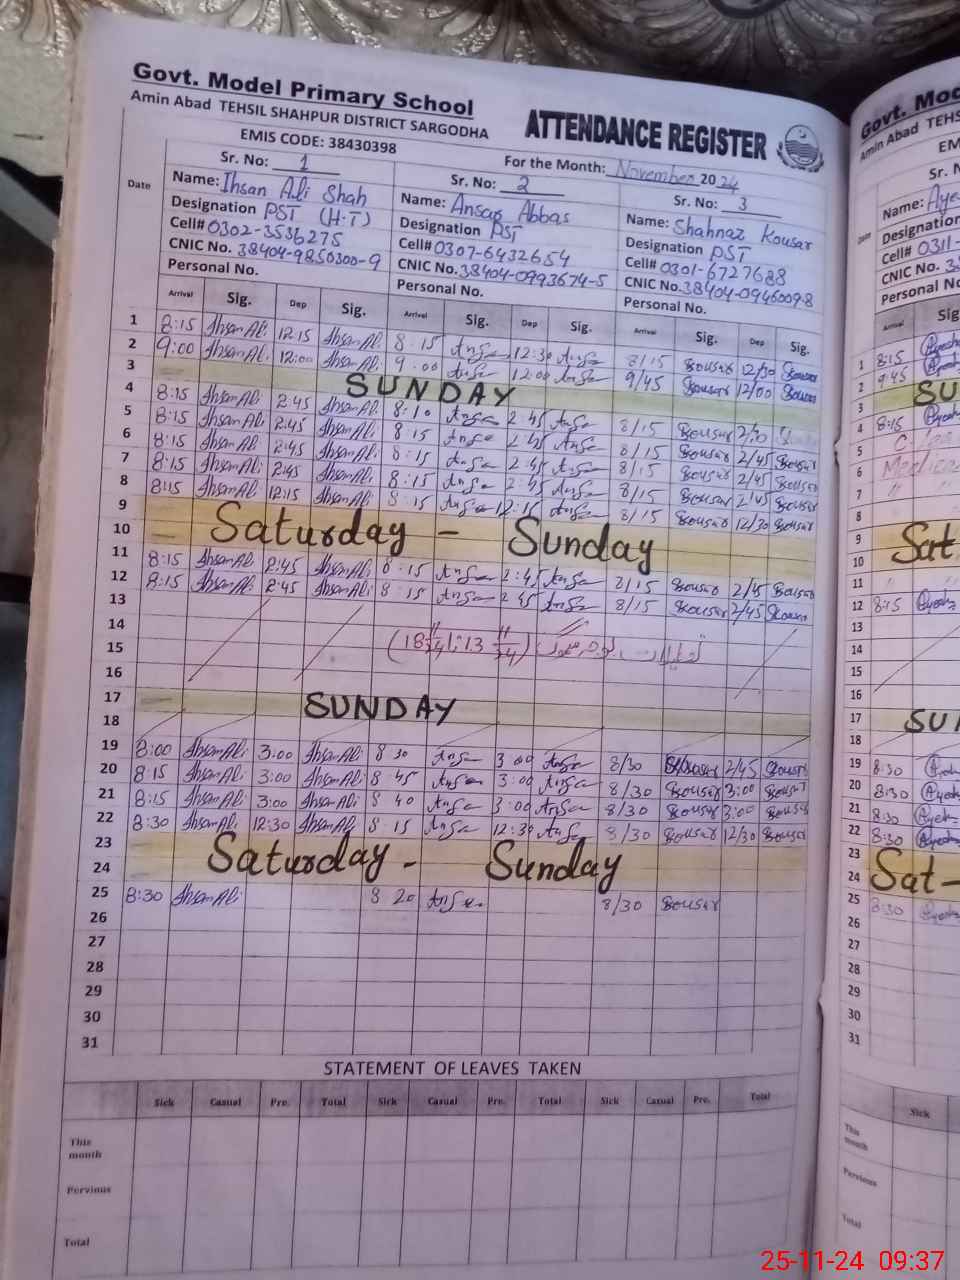 Govt. Model Primary School
Amin Abad TEHSIL SHAHPUR DISTRICT SARGODHA
ATTENDANCE REGISTER
EMIS CODE: 38430398
For the Month: November 2024
Date
Sr. No: 1
Name: Ihsan Ali Shah
Designation PST (H.T)
Cell# 0302-3536275
CNIC No. 38404-9850300-9
Personal No.
Sr. No: 2
Name: Ansar Abbas
Designation PST
Cell# 0307-6432654
CNIC No. 38404-0993674-5
Personal No.
Sr. No: 3
Name: Shahnaz Kousar
Designation PST
Cell# 0301-6727688
CNIC No. 38404-0946009-8
Personal No.
Arrival Sig. Dep Sig. Arrival Sig. Dep Sig. Arrival Sig. Dep Sig.
1 8:15 Ihsan Ali 12:15 Ihsan Ali 8:15 Ansar 12:30 Ansar 8/15 Kousar 12/30 Kousar
2 9:00 Ihsan Ali 12:00 Ihsan Ali 9:00 Ansar 12:00 Ansar 9/45 Kousar 12/00 Kousar
3 SUNDAY
4 8:15 Ihsan Ali 2:45 Ihsan Ali 8:10 Ansar 2:45 Ansar 8/15 Kousar
5 8:15 Ihsan Ali 2:45 Ihsan Ali 8:15 Ansar 2:45 Ansar 8/15 Kousar 2/45 Kousar
6 8:15 Ihsan Ali 2:45 Ihsan Ali 8:15 Ansar 2:45 Ansar 8/15 Kousar 2/45 Kousar
7 8:15 Ihsan Ali 2:45 Ihsan Ali 8:15 Ansar 2:45 Ansar 8/15 Kousar 2/45 Kousar
8 8:15 Ihsan Ali 12:15 Ihsan Ali 8:15 Ansar 12:15 Ansar 8/15 Kousar 12/30 Kousar
9
10 Saturday - Sunday
11 8:15 Ihsan Ali 2:45 Ihsan Ali 8:15 Ansar 2:45 Ansar 8/15 Kousar 2/45 Kousar
12 8:15 Ihsan Ali 2:45 Ihsan Ali 8:15 Ansar 2:45 Ansar 8/15 Kousar 2/45 Kousar
13
14
15
16
17 SUNDAY
18
19 8:00 Ihsan Ali 3:00 Ihsan Ali 8 30 Ansar 3 00 Ansar 8/30 Kousar 2/45 Kousar
20 8:15 Ihsan Ali 3:00 Ihsan Ali 8 45 Ansar 3:00 Ansar 8/30 Kousar 3:00 Kousar
21 8:15 Ihsan Ali 3:00 Ihsan Ali 8 40 Ansar 3:00 Ansar 8/30 Kousar 3:00 Kousar
22 8:30 Ihsan Ali 12:30 Ihsan Ali 8:15 Ansar 12:30 Ansar 8/30 Kousar 12/30 Kousar
23
24 Saturday - Sunday
25 8:30 Ihsan Ali 8 20 Ansar 8/30 Kousar
26
27
28
29
30
31
STATEMENT OF LEAVES TAKEN
Sick Casual Pre. Total Sick Casual Pre. Total Sick Casual Pre. Total
This month
Pervious
Total
Govt. Mod
Amin Abad TEHS
EM
Sr. N
Name: Aye
Designation
Cell# 0311-
CNIC No. 3
Personal No
Date
Arrival Sig
1 8:15
2 9:45
3 SU
4 8:15
5
6
7
8
9
10 Sat
11
12 8:15
13
14
15
16
17 SU
18
19 8:30
20 8:30
21 8:30
22 8:30
23
24 Sat-
25 8:30
26
27
28
29
30
31
Sick
This month
Pervious
Total
25-11-24 09:37